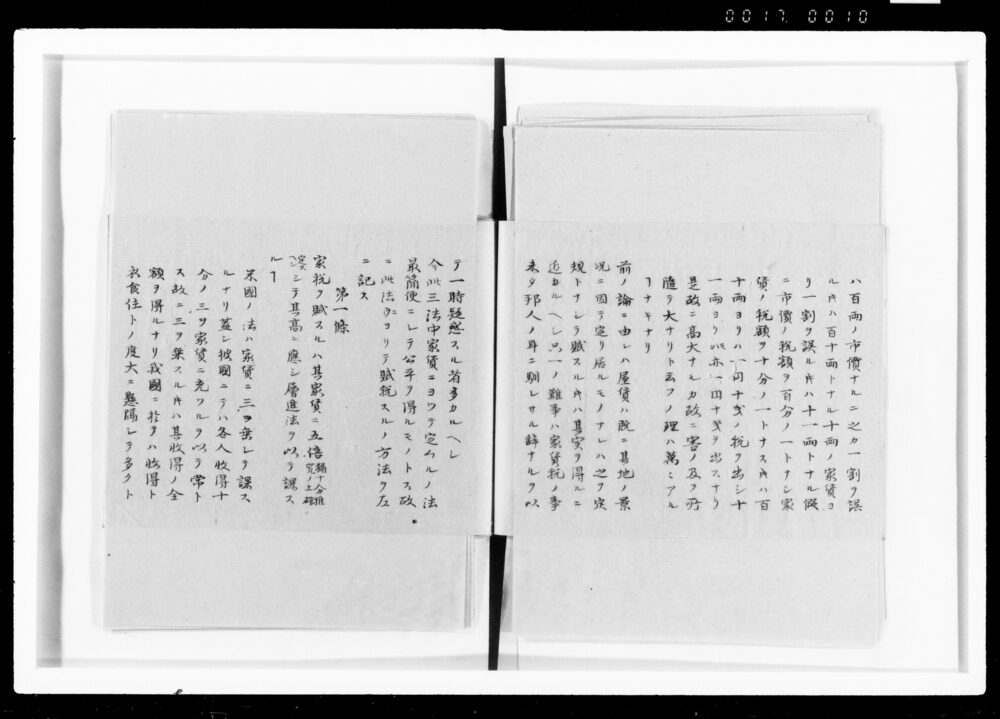 0017. 0010
ハ百両ノ市價ナルニ之カ一割ヲ誤
ルキハ百十両トナル十両ノ家賃ヨ
リ一割ヲ誤ルキハ十一両トナル假
ニ市價ノ税額ヲ百分ノ一トナシ家
賃ノ税額ヲ十分ノ一トナスキハ百
十両ヨリハ一円十戔ノ税ヲ出シ十
一両ヨリモ亦一円十戔ヲ出スナリ
是故ニ高大ナルカ故ニ害ノ及フ所
随テ大ナリト云フノ理ハ萬々アル
ヿナキナリ
前ノ論ニ由レハ屋賃ハ既ニ其地ノ景
況ニ因テ定リ居ルモノナレハ之ヲ定
規トナシテ賦スルキハ其実ヲ得ルニ
近カルヘシ只一ノ難事ハ家賃税ノ事
未タ邦人ノ耳ニ馴レサル辞ナルヲ以
テ一時疑惑スル者多カルヘシ
今此三法中家賃ニヨツテ定ムルノ法
最簡便ニシテ公平ヲ得ルモノトス故
ニ此法ニヨリテ賦税スルノ方法ヲ左
ニ記ス
第一條
家税ヲ賦スルハ其家賃ニ五倍
シテ其高ニ應シ層進法ヲ以テ課ス
ルヿ
米國ノ法ハ家賃ニ三ヲ乗シテ課ス
ルナリ蓋シ彼國ニテハ各人收得十
分ノ三ヲ家賃ニ充ツルヲ以テ常ト
ス故ニ三ヲ乗スルキハ其收得ノ全
額ヲ得ルナリ我國ニ於テハ收得ト
衣食住トノ度大ニ懸隔シテ多クト